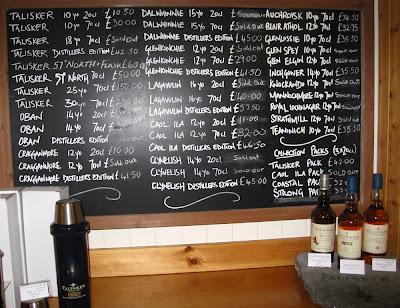 TALISKER 10yo 20cl £10.50
TALISKER 10yo 70cl £30.00
TALISKER 18yo 70cl Sold out
TALISKER DISTILLERS EDITION £42.50
TALISKER 57° NORTH + FLASK £60.00
TALISKER 57° NORTH 70cl £50.00
TALISKER 25yo 70cl £150.00
TALISKER 30yo 70cl
OBAN 14yo 20cl
OBAN 14yo 70cl
OBAN DISTILLERS EDITION
CRAGGANMORE 12yo 20cl £10.00
CRAGGANMORE 12yo 70cl Sold out
CRAGGANMORE DISTILLERS EDITION £41.50
DALWHINNIE 15yo 20cl Sold out
DALWHINNIE 15yo 70cl
DALWHINNIE DISTILLERS EDITION £45.00
GLENKINCHIE 12yo 20cl Sold out
GLENKINCHIE 12yo 70cl £29.00
GLENKINCHIE DISTILLERS EDITION £41.50
LAGAVULIN 16yo 20cl
LAGAVULIN 16yo 70cl
LAGAVULIN DISTILLERS EDITION £57.50
CAOL ILA 12yo 20cl £11.00
CAOL ILA 12yo 70cl £32.00
CAOL ILA DISTILLERS EDITION £46.50
CLYNELISH 14yo 20cl Sold out
CLYNELISH 14yo 70cl Sold out
CLYNELISH DISTILLERS EDITION £45.00
AUCHROISK 10yo 70cl £36.50
BLAIR ATHOL 12yo 70cl
GLENLOSSIE 10yo 70cl
GLEN SPEY 12yo 70cl Sold out
GLEN ELGIN 12yo 70cl
INCHGOWER 14yo 70cl
KNOCKANDO 12yo 70cl
MANNOCHMORE 12yo 70cl
ROYAL LOCHNAGAR 12yo 70cl
STRATHMILL 12yo 70cl
TEANINICH 10yo 70cl £38.50
COLLECTION PACKS (3x20cl)
TALISKER PACK £42.00
CAOL ILA PACK Sold out
COASTAL PACK
STRONG PACK
TALISKER